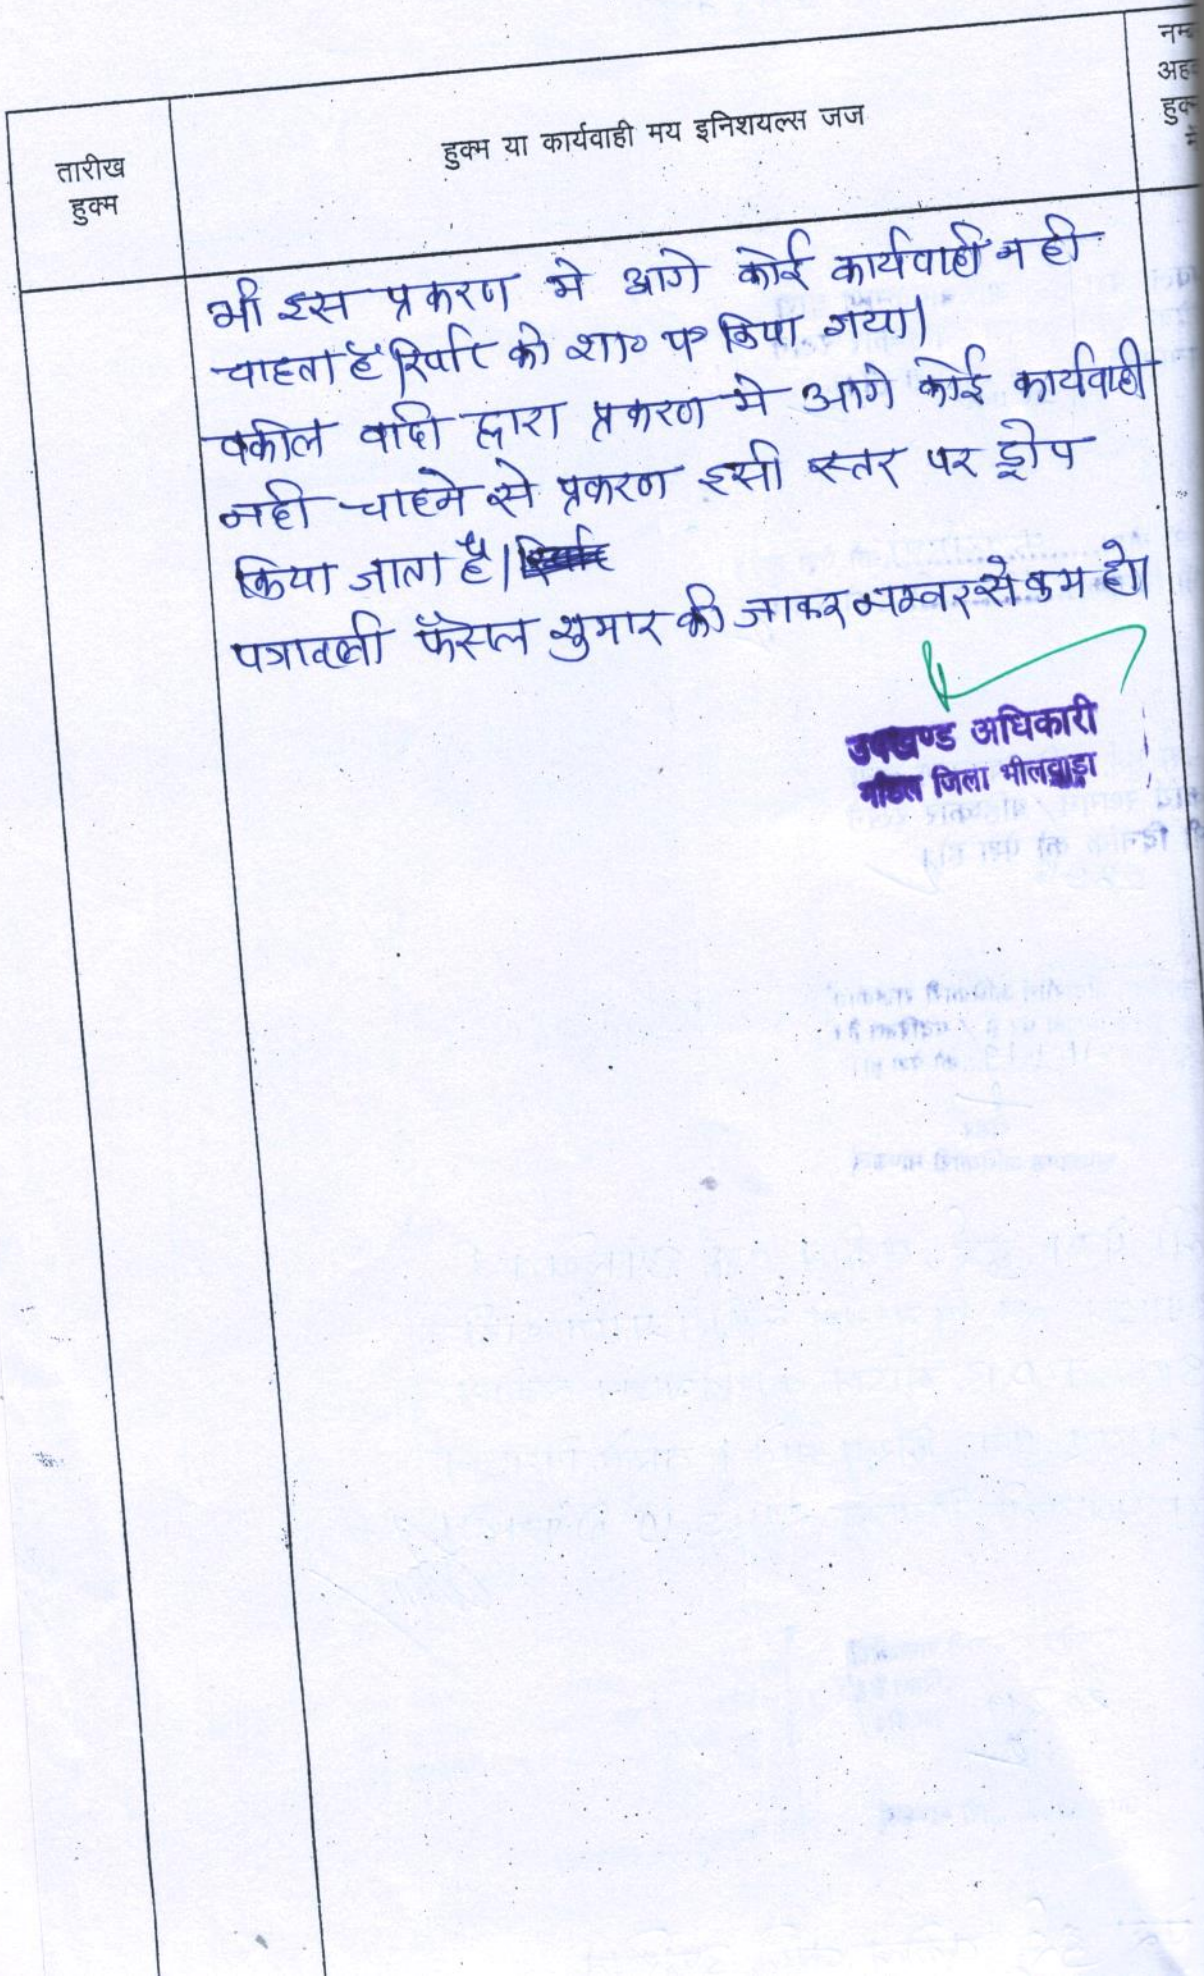 तारीख
हुक्म
हुक्म या कार्यवाही मय इनिशयल्स जज
भी इस प्रकरण मे आगे कोई कार्यवाही नही
चाहता है रिर्पोट को शा० प० किया गया।
वकील वादी द्वारा प्रकरण मे आगे कोई कार्यवाही
नही चाहने से प्रकरण इसी स्तर पर ड्रोप
किया जाता है।
पत्रावली फैसल शुमार की जाकर नम्बर से कम हो।
उपखण्ड अधिकारी
माण्डल जिला भीलवाड़ा